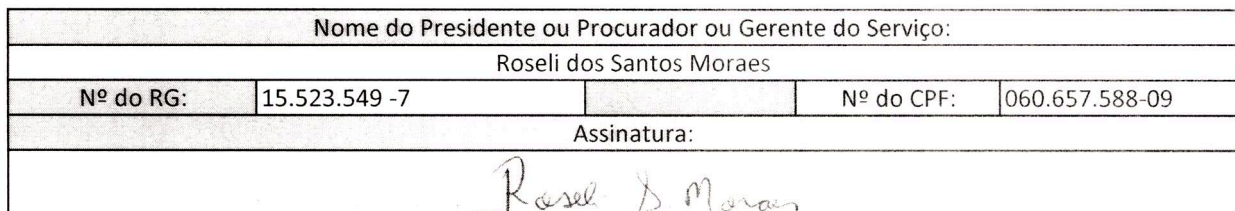 Nome do Presidente ou Procurador ou Gerente do Serviço:
Roseli dos Santos Moraes
Nº do RG: 15.523.549 -7 Nº do CPF: 060.657.588-09
Assinatura:
Roseli S. Moraes